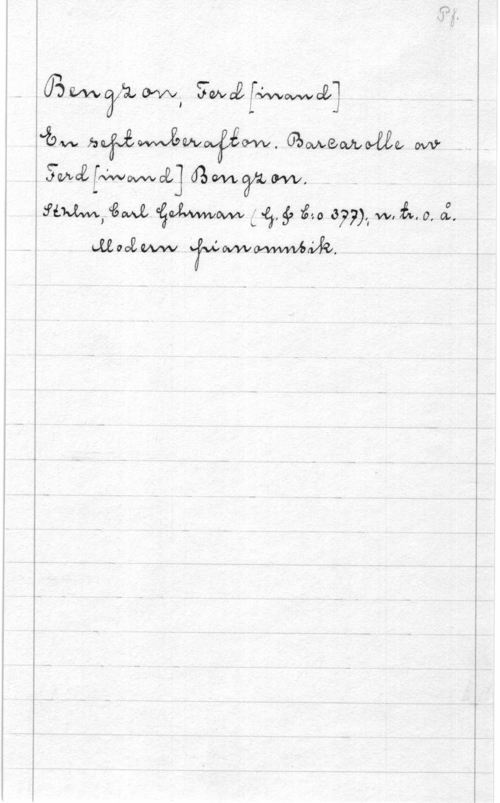 Pf.
Bengzon, Ferd[inand]
En septemberafton. Barcarolle av
Ferd[inand] Bengzon.
Sthlm, Carl Gehrman (G. & C:o 377), n. tr. o. å.
Modern pianomusik.